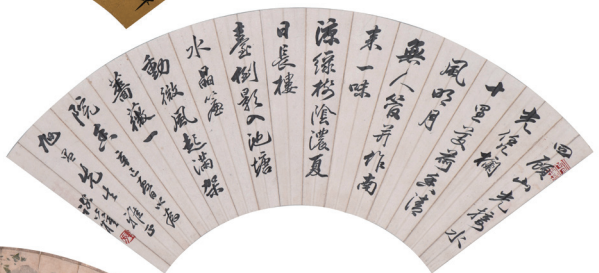 四顧山光接水
光凭欄
十里芰荷香清
風明月
無人管并作南
來一味
涼綠樹陰濃夏
日長樓
臺倒影入池塘
水晶簾
動微風起滿架
薔薇一
院香 辛巳
先生雅正